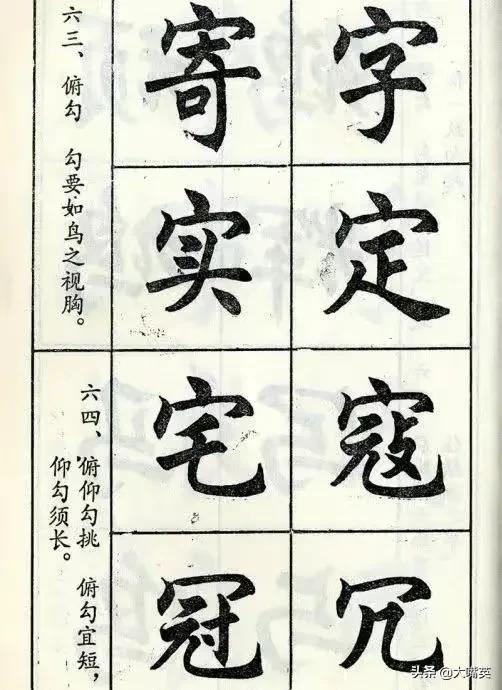 六三、俯勾 勾要如鸟之视胸。
寄 字
实 定
六四、俯仰勾挑 俯勾宜短，
仰勾须长。
宅 寇
冠 冗
头条 @大嘴英